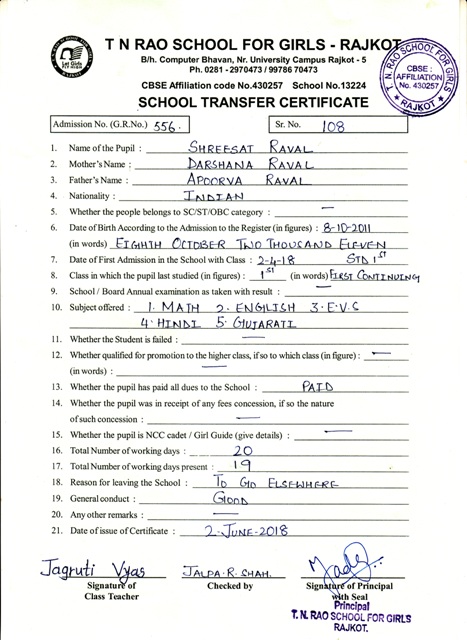 T N RAO SCHOOL FOR GIRLS - RAJKOT
B/h. Computer Bhavan, Nr. University Campus Rajkot - 5
Ph. 0281 - 2970473 / 99786 70473
CBSE Affiliation code No.430257 School No.13224
T. N. RAO SCHOOL FOR GIRLS
CBSE:
AFFILIATION
No. 430257
RAJKOT
SCHOOL TRANSFER CERTIFICATE
Admission No. (G.R.No.) 556. Sr. No. 108
1. Name of the Pupil : SHREESAT RAVAL
2. Mother's Name : DARSHANA RAVAL
3. Father's Name : APOORVA RAVAL
4. Nationality : INDIAN
5. Whether the people belongs to SC/ST/OBC category : —
6. Date of Birth According to the Admission to the Register (in figures) : 8-10-2011
(in words) EIGHTH OCTOBER TWO THOUSAND ELEVEN
7. Date of First Admission in the School with Class : 2-4-18 STD 1st
8. Class in which the pupil last studied (in figures) : 1st (in words) FIRST CONTINUING
9. School / Board Annual examination as taken with result : —
10. Subject offered : 1. MATH 2. ENGLISH 3. E.V.S
4. HINDI 5. GUJARATI
11. Whether the Student is failed : —
12. Whether qualified for promotion to the higher class, if so to which class (in figure) : —
(in words) : —
13. Whether the pupil has paid all dues to the School : PAID
14. Whether the pupil was in receipt of any fees concession, if so the nature
of such concession : —
15. Whether the pupil is NCC cadet / Girl Guide (give details) : —
16. Total Number of working days : 20
17. Total Number of working days present : 19
18. Reason for leaving the School : TO GO ELSEWHERE
19. General conduct : GOOD
20. Any other remarks : —
21. Date of issue of Certificate : 2-JUNE-2018
Jagruti Vyas JALPA.R.SHAH.
Signature of Class Teacher
Checked by
Signature of Principal
with Seal
Principal
T. N. RAO SCHOOL FOR GIRLS
RAJKOT.